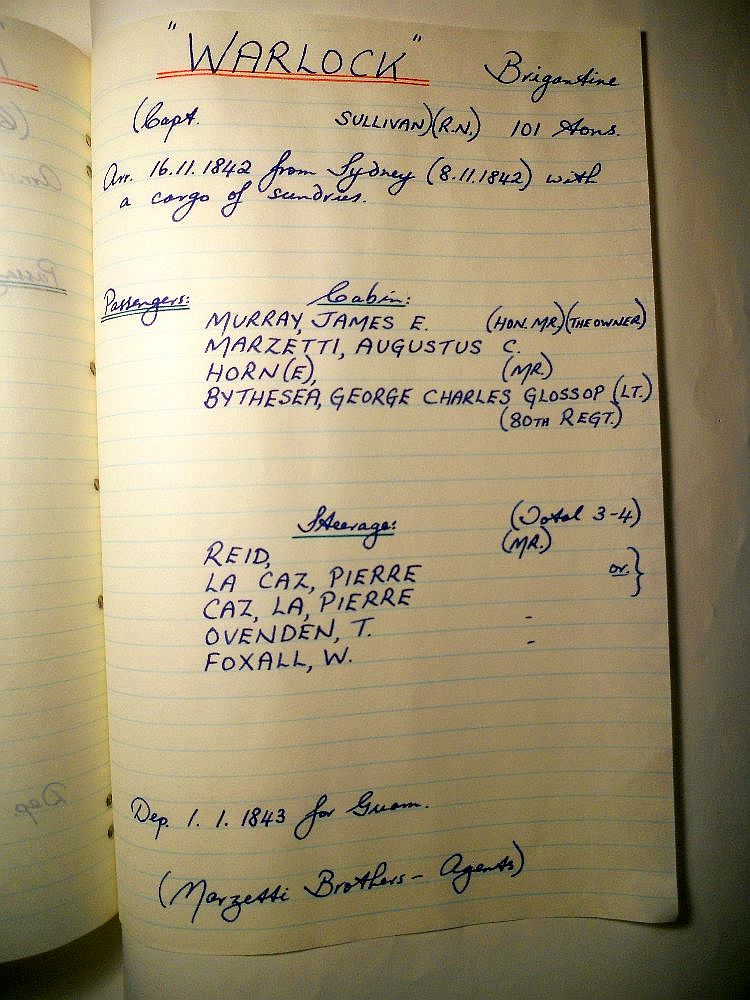 "WARLOCK" Brigantine
(Capt. SULLIVAN) (R.N.) 101 Tons.
Arr. 16.11.1842 from Sydney (8.11.1842) with
a cargo of sundries.
Passengers: Cabin:
MURRAY, JAMES E. (HON. MR.) (THE OWNER)
MARZETTI, AUGUSTUS C.
HORN(E), (MR.)
BYTHESEA, GEORGE CHARLES GLOSSOP (LT.)
(80TH REGT.)
Steerage: (Total 3-4)
REID, (MR.)
LA CAZ, PIERRE or }
CAZ, LA, PIERRE
OVENDEN, T. -
FOXALL, W. -
Dep. 1. 1. 1843 for Guam.
(Marzetti Brothers - Agents)
Dep.